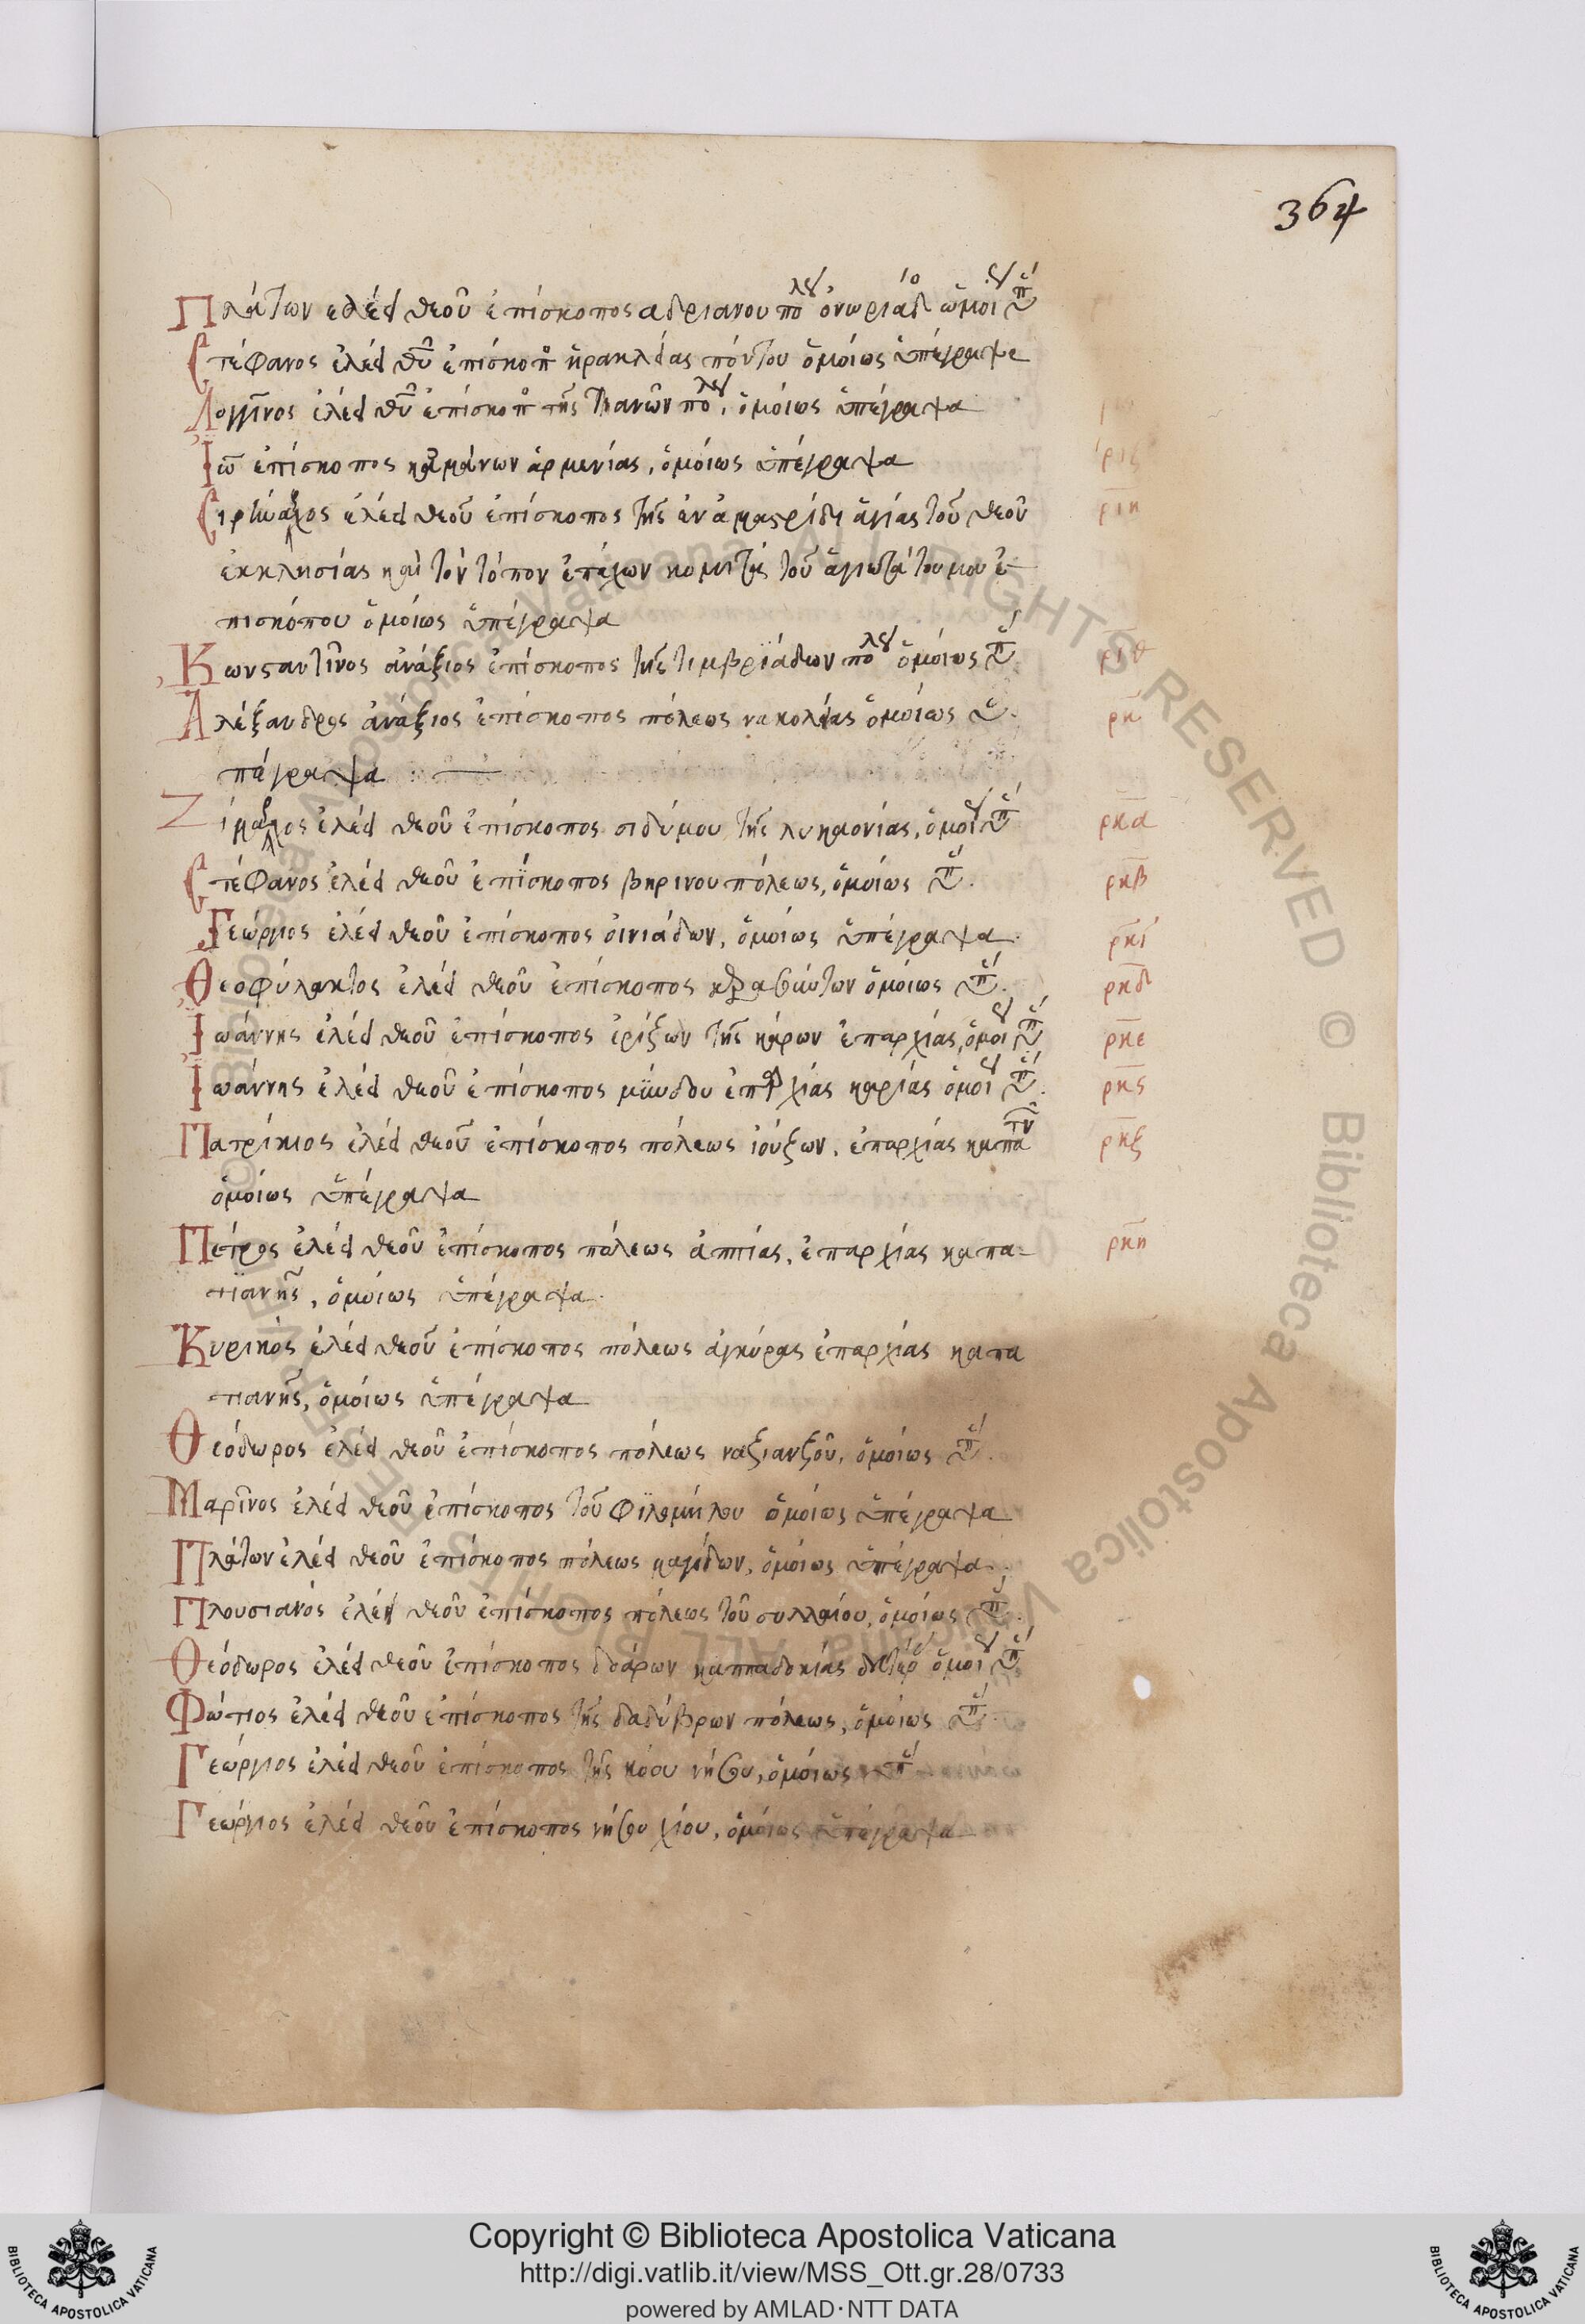 364
Πλάτων ελέει θεοῦ ἐπίσκοπος αδριανουπο λ ὀνωριάδ ὡμοι ὑπ
Στέφανος ἐλέει θυ ἐπίσκοπ ἡρακλείας πόντου ὁμοίως ὑπέγραψα
Λογγῖνος ἐλέει θυ ἐπίσκοπ τῆς τιανῶν πολ, ὁμοίως ὑπέγραψα
Ἰω ἐπίσκοπος καμάνων ἀρμενίας, ὁμοίως ὑπέγραψα ριζ
ἐλέει θεοῦ ἐπίσκοπος τῆς ἐν ἀμαστρίδι ἁγίας τοῦ θεοῦ ριη
ἐκκλησίας καὶ τὸν τόπον ἐπέχων κομιτᾶ τοῦ ἁγιωτάτου μου ἐ-
πισκόπου ὁμοίως ὑπέγραψα
Κωνσταντῖνος ἀνάξιος ἐπίσκοπος τῆς τιμβριάδων πολ ὁμοίως ὑπ ριθ
Ἀλέξανδρος ἀνάξιος ἐπίσκοπος πόλεως νακολείας ὁμοίως ὑ- ρκ
πέγραψα
ἐλέει θεοῦ ἐπίσκοπος σιδύμου τῆς λυκαονίας, ὁμοι ὑπ ρκα
Στέφανος ἐλέει θεοῦ ἐπίσκοπος βηρινουπόλεως, ὁμοίως ὑπ ρκβ
Γεώργιος ἐλέει θεοῦ ἐπίσκοπος οἰνιάδων, ὁμοίως ὑπέγραψα ρκγ
Θεοφύλακτος ἐλέει θεοῦ ἐπίσκοπος ὁμοίως ὑπ ρκδ
Ἰωάννης ἐλέει θεοῦ ἐπίσκοπος ἐρίζων τῆς κάρων ἐπαρχίας, ὁμοι ὑπ ρκε
Ἰωάννης ἐλέει θεοῦ ἐπίσκοπος μύνδου ἐπαρχίας καρίας ὁμοι ὑπ ρκς
Πατρίκιος ἐλέει θεοῦ ἐπίσκοπος πόλεως ἰούζων, ἐπαρχίας καπα ρκζ
ὁμοίως ὑπέγραψα
Πέτρος ἐλέει θεοῦ ἐπίσκοπος πόλεως ἀππίας, ἐπαρχίας καπα- ρκη
τιανῆς, ὁμοίως ὑπέγραψα
Κυρικὸς ἐλέει θεοῦ ἐπίσκοπος πόλεως ἀγκύρας ἐπαρχίας καπα
τιανῆς, ὁμοίως ὑπέγραψα
Θεόδωρος ἐλέει θεοῦ ἐπίσκοπος πόλεως ναζιανζοῦ, ὁμοίως ὑπ
Μαρῖνος ἐλέει θεοῦ ἐπίσκοπος τοῦ φιλομήλου ὁμοίως ὑπέγραψα
Πλάτων ἐλέει θεοῦ ἐπίσκοπος πόλεως μαγύδων, ὁμοίως ὑπέγραψα
Πλουσιανὸς ἐλέει θεοῦ ἐπίσκοπος πόλεως τοῦ συλλαίου, ὁμοίως ὑπ
Θεόδωρος ἐλέει θεοῦ ἐπίσκοπος δοάρων καππαδοκίας δευτέρ ὁμοι ὑπ
Φώτιος ἐλέει θεοῦ ἐπίσκοπος τῆς δαδύβρων πόλεως, ὁμοίως ὑπ
Γεώργιος ἐλέει θεοῦ ἐπίσκοπος τῆς κόου νήσου, ὁμοίως ὑπ
Γεώργιος ἐλέει θεοῦ ἐπίσκοπος νήσου χίου, ὁμοίως ὑπέγραψα
Biblioteca Apostolica Vaticana ALL RIGHTS RESERVED © Biblioteca Apostolica Vaticana ALL RIGHTS RESERVED ©
Copyright © Biblioteca Apostolica Vaticana
http://digi.vatlib.it/view/MSS_Ott.gr.28/0733
powered by AMLAD・NTT DATA
BIBLIOTECA APOSTOLICA VATICANA
BIBLIOTECA APOSTOLICA VATICANA